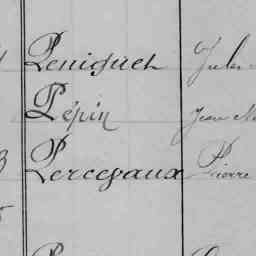 Peniguel Jules
Pépin Jean
Percevaux Pierre